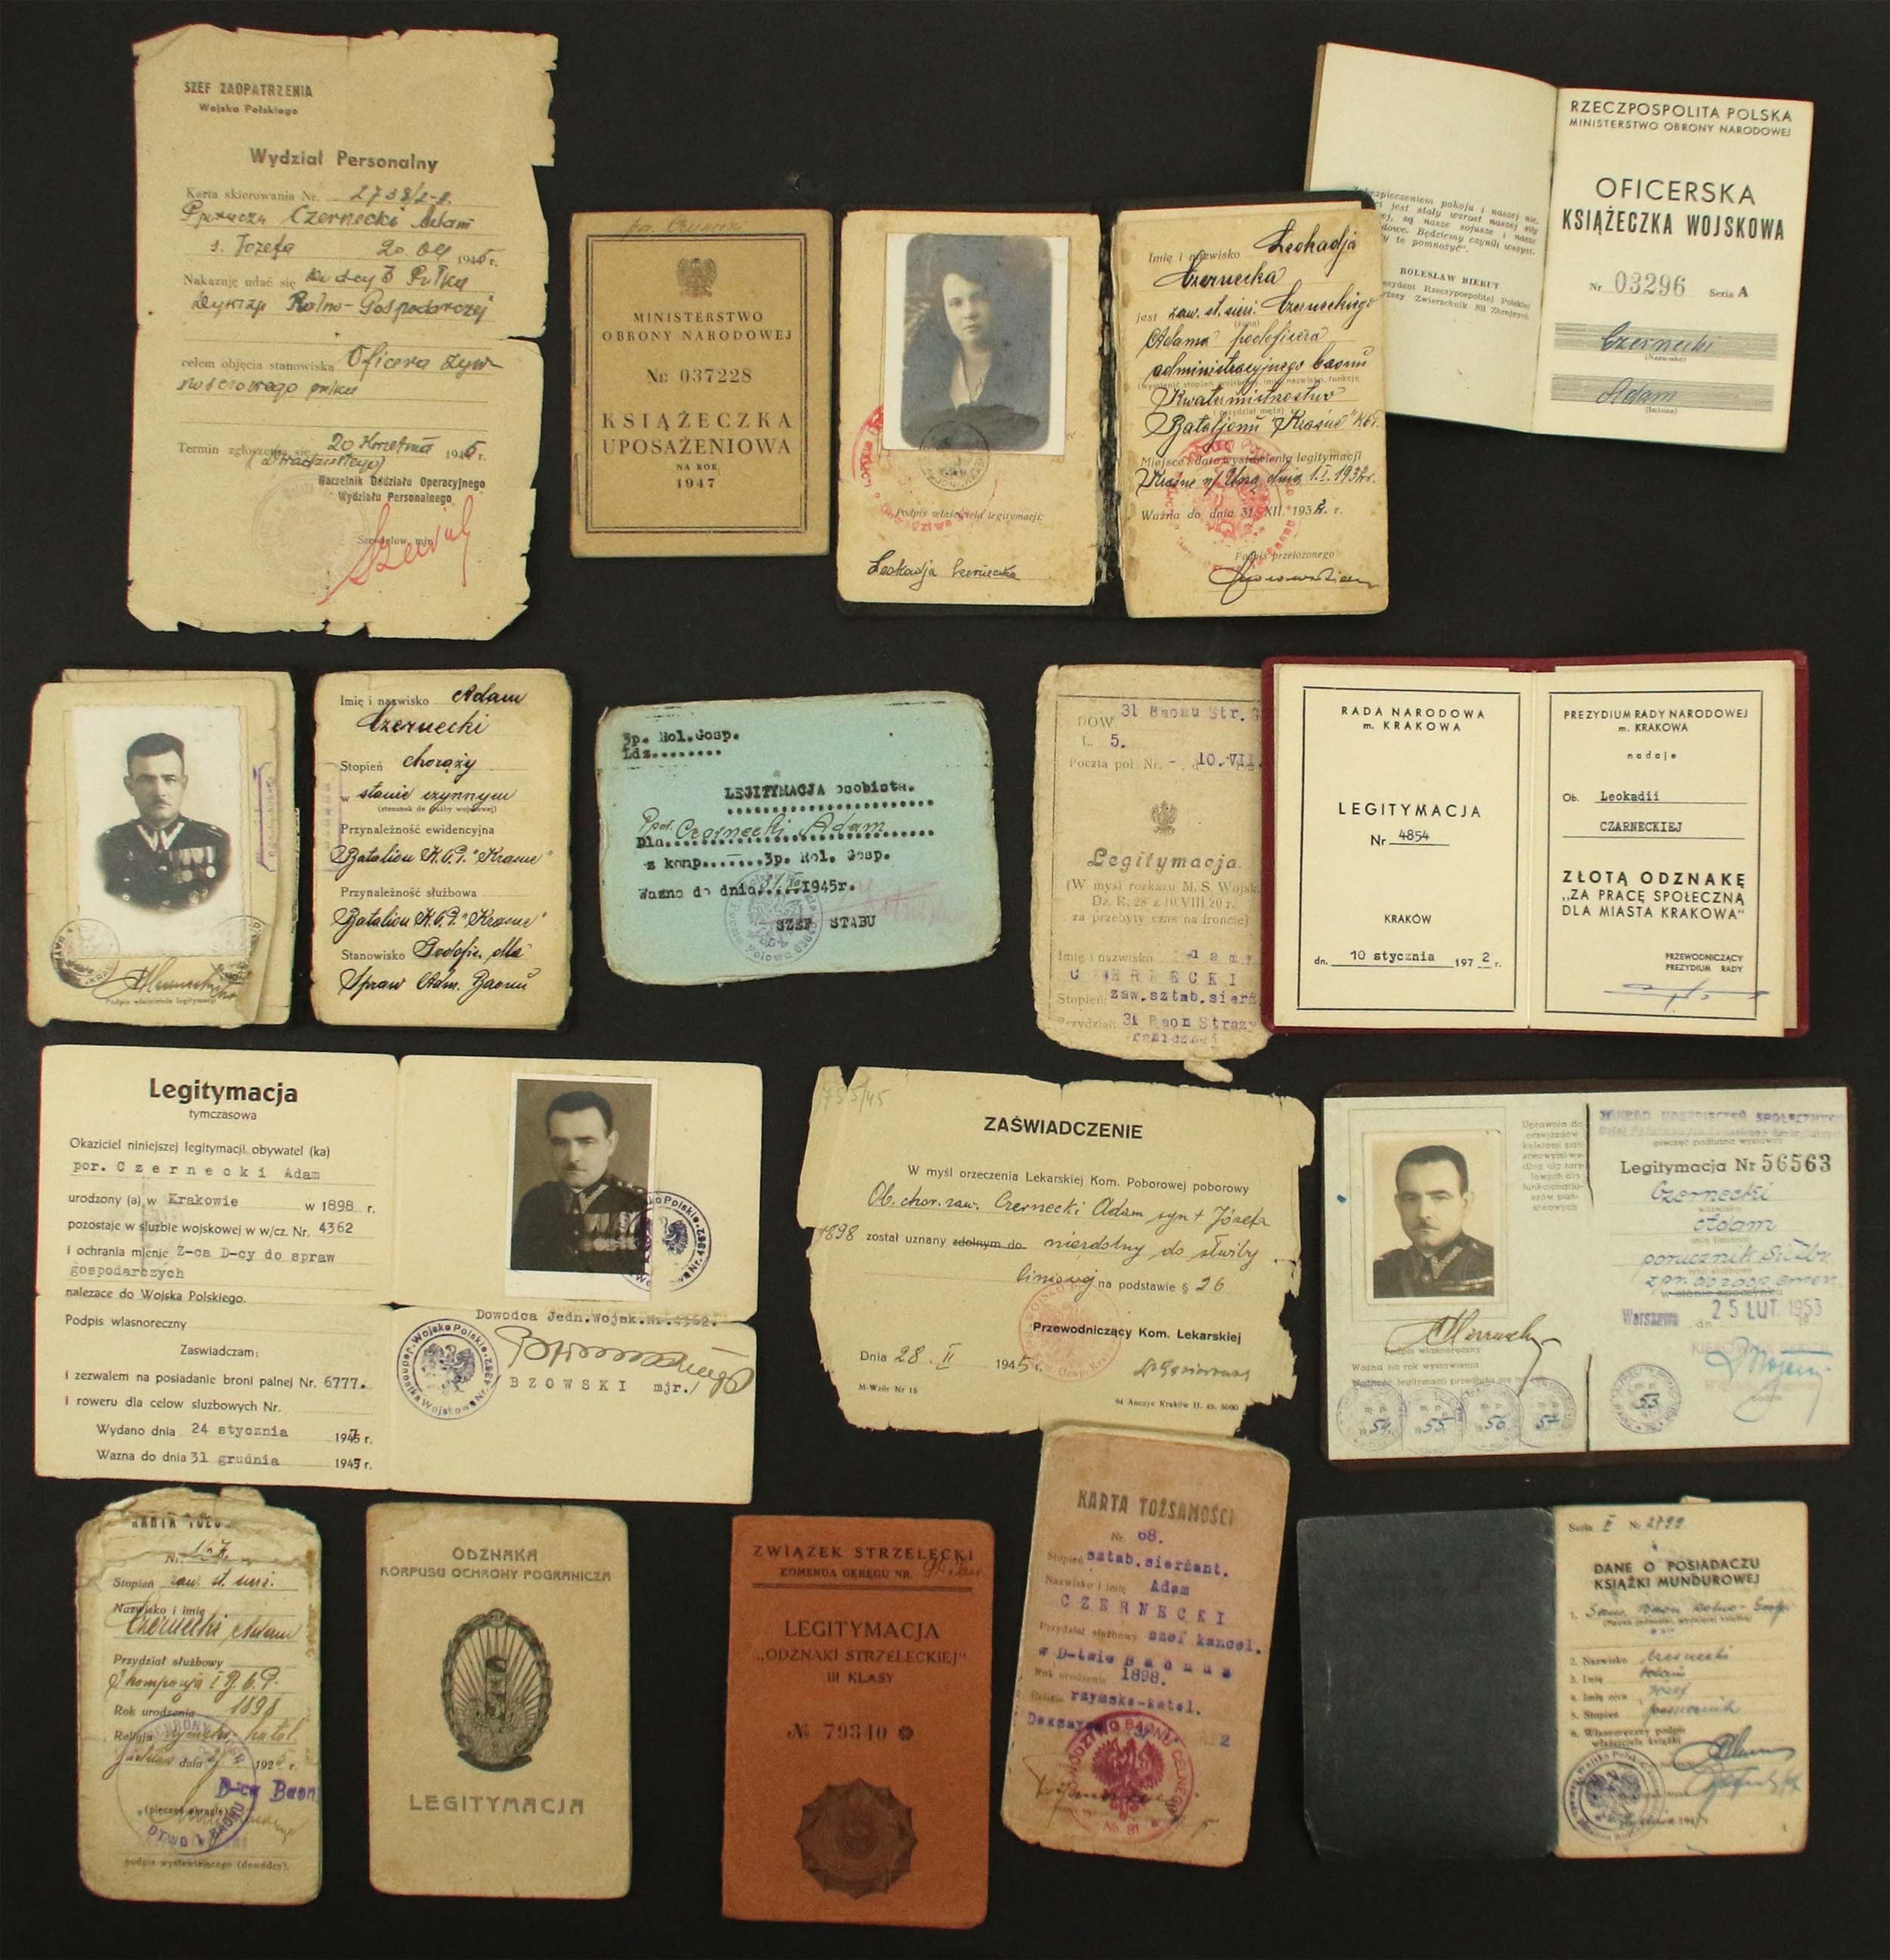 SZEF ZAOPATRZENIA
Wojska Polskiego
Wydział Personalny
Karta skierowania Nr. 2738/
Czernecki Adam
s. Józefa 20.04 1945 r.
Nakazuję udać się
Rolno-Gospodarczej
celem objęcia stanowiska Oficera żyw-
nościowego pułku
Termin zgłoszenia się 20 Kwietnia 1945 r.
(Dwadziestego)
Naczelnik Oddziału Operacyjnego
Wydziału Personalnego
MINISTERSTWO
OBRONY NARODOWEJ
Nr 037228
KSIĄŻECZKA
UPOSAŻENIOWA
NA ROK
1947
Podpis właściciela legitymacji:
Leokadja Czernecka
Imię i nazwisko Leokadja
Czernecka
jest zaw. st. sierż. Czerneckiego
(żona)
Adama podoficera
administracyjnego baonu
Kwatermistrzostwo
Bataljonu "Krasne" KOP.
Miejsce i data wystawienia legitymacji
Krasne n/Uszą dnia 1.I.1937r.
Ważna do dnia 31.XII.1938. r.
Podpis przełożonego
Zabezpieczeniem pokoju i naszej nie-
jest stały wzrost naszej siły
są nasze sojusze i nasze
Będziemy czynili wszyst-
by te pomnożyć".
BOLESŁAW BIERUT
Prezydent Rzeczypospolitej Polskiej
Zwierzchnik Sił Zbrojnych
RZECZPOSPOLITA POLSKA
MINISTERSTWO OBRONY NARODOWEJ
OFICERSKA
KSIĄŻECZKA WOJSKOWA
Nr 03296 Seria A
Czernecki
(Nazwisko)
Adam
(Imiona)
Podpis właściciela legitymacji
Imię i nazwisko Adam
Czernecki
Stopień chorąży
w stanie czynnym
Przynależność ewidencyjna
Batalion K.O.P. "Krasne"
Przynależność służbowa
Batalion K.O.P. "Krasne"
Stanowisko Podofic. dla
Spraw Adm. Baonu
3p. Rol.Gosp.
Ldz........
LEGITYMACJA osobista.
Ppor. Czernecki Adam
Dla
z konp.......3p. Rol. Gosp.
Ważno do dnia 1945r.
SZEF STABU
DOW. 31 Baonu Str. G
L. 5.
Poczta pol. Nr. - 10.VII.
Legitymacja.
(W myśl rozkazu M. S. Wojsk.
Dz. R. 28 z 10.VIII 20 r.
za przebyty czas na froncie)
Imię i nazwisko
CZERNECKI
Stopień: zaw.sztab.sierż
Przydział: 31 Baon Straży
RADA NARODOWA
m. KRAKOWA
LEGITYMACJA
Nr 4854
KRAKÓW
dn. 10 stycznia 1972 r.
PREZYDIUM RADY NARODOWEJ
m. KRAKOWA
nadaje
Ob. Leokadii
CZARNECKIEJ
ZŁOTĄ ODZNAKĘ
„ZA PRACĘ SPOŁECZNĄ
DLA MIASTA KRAKOWA"
PRZEWODNICZĄCY
PREZYDIUM RADY
Legitymacja
tymczasowa
Okaziciel niniejszej legitymacji, obywatel (ka)
por. Czernecki Adam
urodzony (a) w Krakowie w 1898 r.
pozostaje w służbie wojskowej w w/cz. Nr. 4362
i ochrania mienie Z-ca D-cy do spraw
gospodarczych
nalezace do Wojska Polskiego.
Podpis wlasnoreczny
Zaswiadczam:
i zezwalem na posiadanie broni palnej Nr. 6777.
i roweru dla celow sluzbowych Nr.
Wydano dnia 24 stycznia 1947 r.
Wazna do dnia 31 grudnia 1947 r.
Dowodca Jedn.Wojsk.Nr.4362.
BZOWSKI mjr.
755/45
ZAŚWIADCZENIE
W myśl orzeczenia Lekarskiej Kom. Poborowej poborowy
Ob. chor. zaw. Czernecki Adam syn Józefa
1898 został uznany zdolnym do niezdolny do służby
liniowej na podstawie § 26
Przewodniczący Kom. Lekarskiej
Dnia 28.II 1945 r.
M-Wzór Nr 15
Anczyc Kraków II. 45. 5000
Uprawnia do
przejazdów
kolejami pań-
stwowymi we-
dług ulg tary-
fowych dla
funkcjonariu-
szów pań-
stwowych
Podpis własnoręczny
Ważna na rok wystawienia
Ważność legitymacji przedłuża się na
54. 55. 56. 57.
ZAKŁAD UBEZPIECZEŃ SPOŁECZNYCH
pieczęć podłużna wystawcy
Legitymacja Nr 56563
Czernecki
nazwisko
Adam
porucznik
Warszawa, dn. 25 LUT. 1953
53
KARTA TOŻS
Nr. 157
Stopień zaw. st. sierż.
Nazwisko i imię
Czernecki Adam
Przydział służbowy
Rok urodzenia 1898
Religja rzymsko-katol.
dnia 192 r.
D-ca Baon
(pieczęć okrągła)
podpis wystawiającego (dowódcy).
ODZNAKA
KORPUSU OCHRONY POGRANICZA
LEGITYMACJA
ZWIĄZEK STRZELECKI
KOMENDA OKRĘGU NR.
LEGITYMACJA
„ODZNAKI STRZELECKIEJ"
III KLASY
№ 79340
KARTA TOŻSAMOŚCI
Nr. 68.
Stopień sztab.sierżant.
Nazwisko i imię Adam
CZERNECKI
Przydział służbowy szef kancel.
w D-twie Baonu
Rok urodzenia 1898.
Religja rzymsko-katol.
DOWÓDZTWO BAONU CELNEGO
№ 31
Serja II Nr 2799
DANE O POSIADACZU
KSIĄŻKI MUNDUROWEJ
1. Sam. Baon Rolno-Gosp.
2. Nazwisko Czernecki
3. Imię Adam
4. Imię ojca Józef
5. Stopień porucznik
6. Własnoręczny podpis
właściciela książki